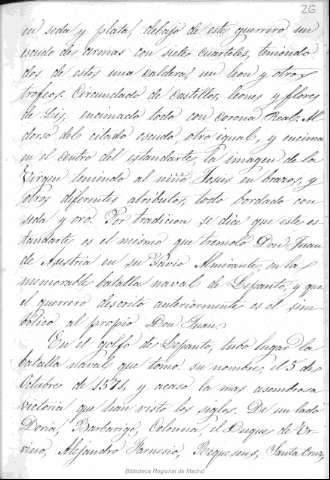 26
en seda y plata, debajo de este guerrero un
escudo de armas con siete cuarteles, teniendo
dos de estos una caldera, un leon y otros
trofeos. Circundado de castillos, leones y flores
de Lis, encimado todo con corona Real. Al
dorso del citado escudo, otro igual, y encima
en el centro del estandarte, la imagen de la
Virgen teniendo al niño Jesus en brazos, y
otros diferentes atributos, todo bordado con
seda y oro. Por tradicion se dice que este es
tandarte es el mismo que tremoló Don Juan
de Austria en su Navio Almirante, en la
memorable batalla naval de Lepanto, y que
el guerrero descrito anteriormente es el sim
bolico al propio Don Juan.
En el golfo de Lepanto, tuvo lugar la
batalla naval que tomó su nombre, el 5 de
Octubre de 1571, y acaso la mas asombrosa
victoria que han visto los siglos. De un lado
Doria, Barbarigo, Colonna, el Duque de Ur
vino, Alejandro Farnesio, Requesens, Santa Cruz,
Biblioteca Regional de Madrid